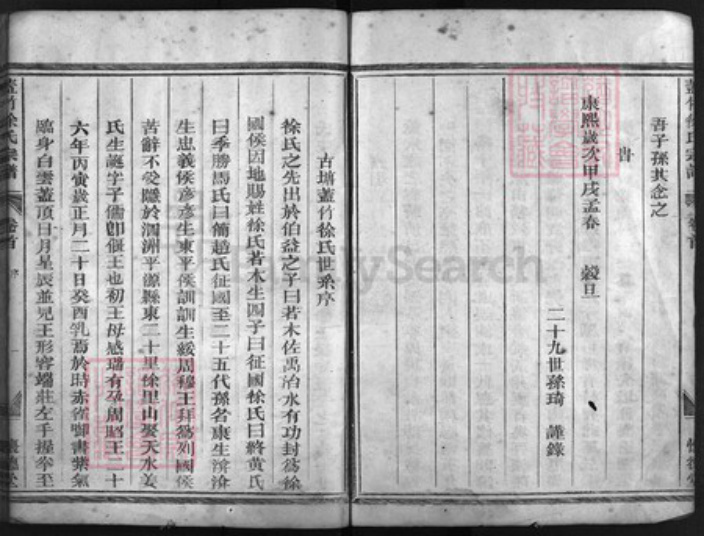 吾子孫其念之
旹
康熙歲次甲戌孟春 穀旦
二十九世孫琦 謹錄
蓋竹徐氏宗譜 卷首 序
古塘蓋竹徐氏世系序
徐氏之先出於伯益之子曰若木佐禹治水有功封為徐
國侯因地賜姓徐氏若木生四子曰征國徐氏曰終黃氏
曰季勝馬氏曰簡趙氏征國至二十五代孫名康生滄滄
生忠義侯彥彥生東平侯訓訓生綏周穆王拜為列國侯
苦辭不受隱於泗洲平源縣東二十里徐里山娶天水姜
氏生誕字子孺卽偃王也初王母感瑞有孕周昭王二十
六年丙寅歲正月二十日癸酉乳焉於時赤雀啣書紫氣
臨身白雲蓋頂日月星辰並見王形容端莊左手握拳至
蓋竹徐氏宗譜 卷首 序
FamilySearch